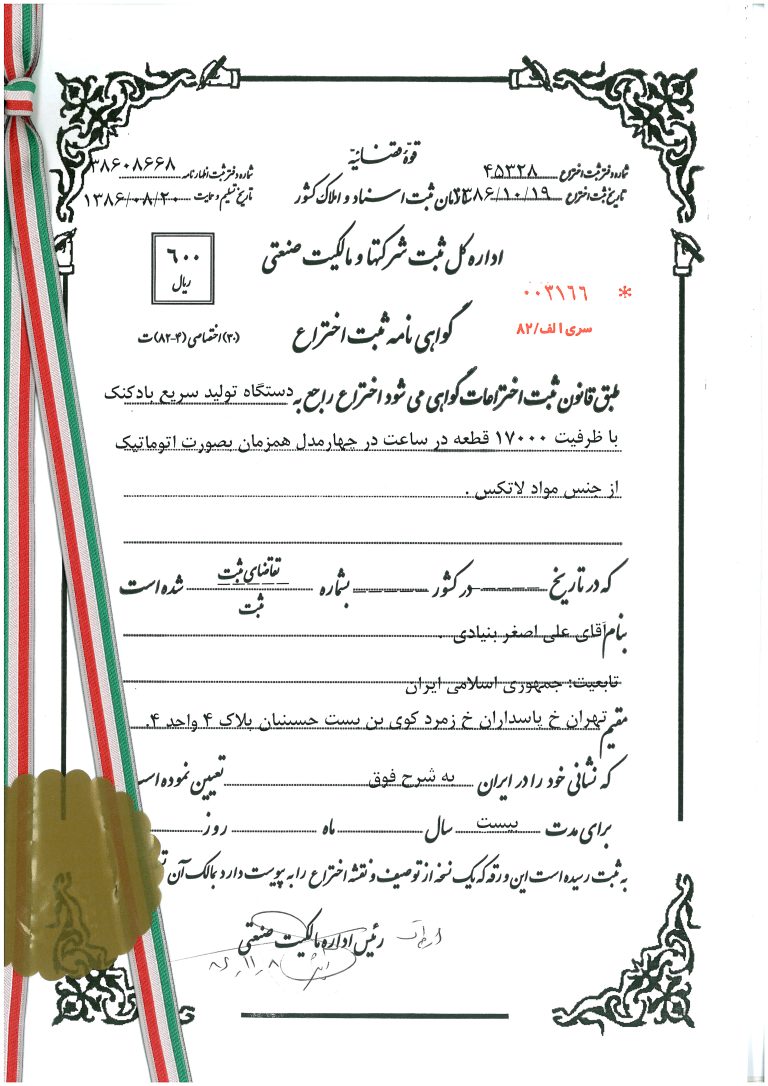 قوهٔ قضائیه
شماره دفتر ثبت اختراع ۴۵۳۲۸
شماره دفتر ثبت اظهارنامه ۳۸۶۰۸۶۶۸
سازمان ثبت اسناد و املاک کشور
تاریخ ثبت اختراع ۱۳۸۶/۱۰/۱۹
تاریخ تسلیم و حمایت ۱۳۸۶/۰۸/۲۰
اداره کل ثبت شرکتها و مالکیت صنعتی
۶۰۰
ریال
* ۰۰۳۱۶۶
سری الف/۸۲
گواهی نامه ثبت اختراع
(۳۰) اختصاصی (۴-۸۲) ت
طبق قانون ثبت اختراعات گواهی می شود اختراع راجع به دستگاه تولید سریع بادکنک
با ظرفیت ۱۷۰۰۰ قطعه در ساعت در چهارمدل همزمان بصورت اتوماتیک
از جنس مواد لاتکس .
که در تاریخ ــــ در کشور ــــ بشماره تقاضای ثبت / ثبت شده است
بنام آقای علی اصغر بنیادی .
تابعیت: جمهوری اسلامی ایران
مقیم تهران خ پاسداران خ زمرد کوی بن بست حسینیان پلاک ۴ واحد ۴.
که نشانی خود را در ایران به شرح فوق تعیین نموده اس
برای مدت بیست سال ماه روز
به ثبت رسیده است این ورقه که یک نسخه از توصیف و نقشه اختراع را به پیوست دارد بمالک آن
رئیس اداره مالکیت صنعتی
۸۶-۱۱-۸